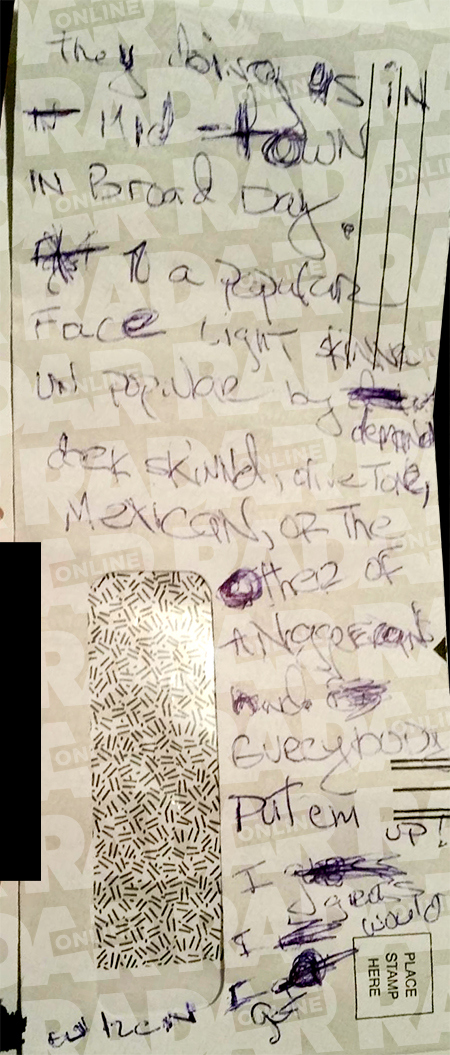 They doing us in
Mid-town
IN Broad Day.
a popular
Face Light skinned
un popular by
demand
dark skinned, olive Tone,
Mexican, or The
other of
and
Everybody
Put em
up!
I
guess
I would
I
as
when
PLACE
STAMP
HERE
RADAR
ONLINE